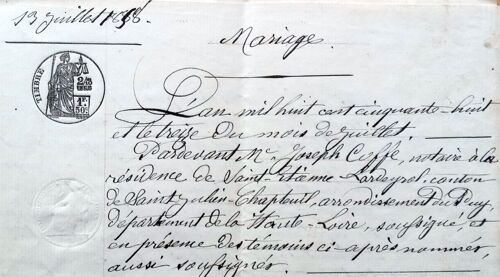 13 Juillet 1858.
Mariage.
TIMBRE
2/10
EN SUS
1F.
50c.
L'an mil huit cent cinquante-huit
et le treize du mois de Juillet.
Pardevant Me. Joseph Coffe, notaire à la
résidence de Saint-Etienne Lardeyrol, canton
de Saint-Julien-Chapteuil, arrondissement du Puy,
département de la Haute-Loire, soussigné, et
en présence des témoins ci-après nommés,
aussi soussignés.